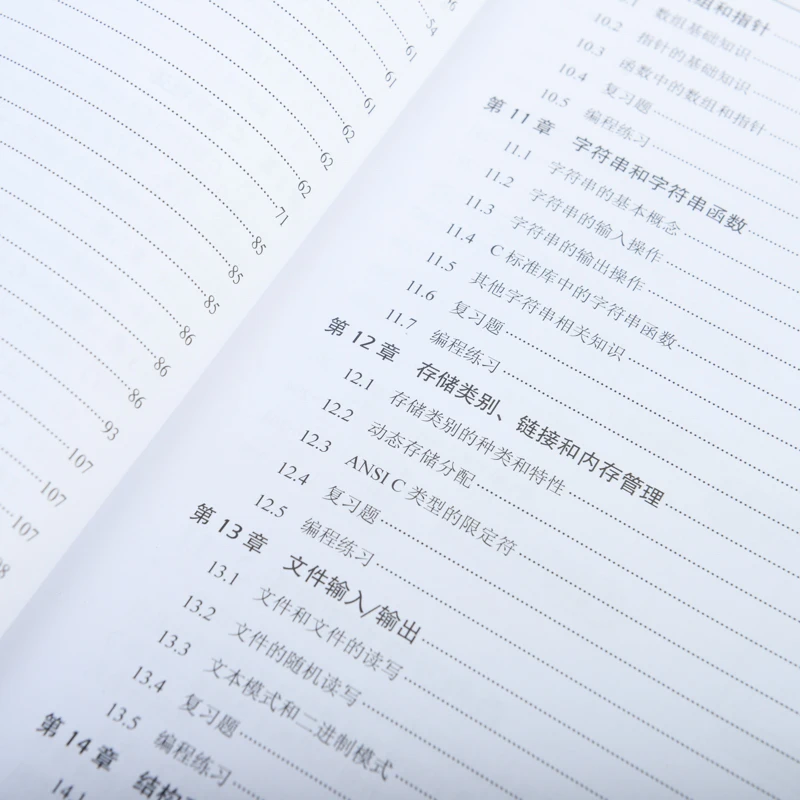 54
61
61
62
62
62
71
85
85
85
86
86
86
93
107
107
107
组和指针
数组基础知识
10.2 指针的基础知识
10.3 函数中的数组和指针
10.4 复习题
10.5 编程练习
第 11 章 字符串和字符串函数
11.1 字符串的基本概念
11.2 字符串的输入操作
11.3 字符串的输出操作
11.4 C 标准库中的字符串函数
11.5 其他字符串相关知识
11.6 复习题
11.7 编程练习
第 12 章 存储类别、链接和内存管理
12.1 存储类别的种类和特性
12.2 动态存储分配
12.3 ANSI C 类型的限定符
12.4 复习题
12.5 编程练习
第 13 章 文件输入/输出
13.1 文件和文件的读写
13.2 文件的随机读写
13.3 文本模式和二进制模式
13.4 复习题
13.5 编程练习
第 14 章 结构
14.1